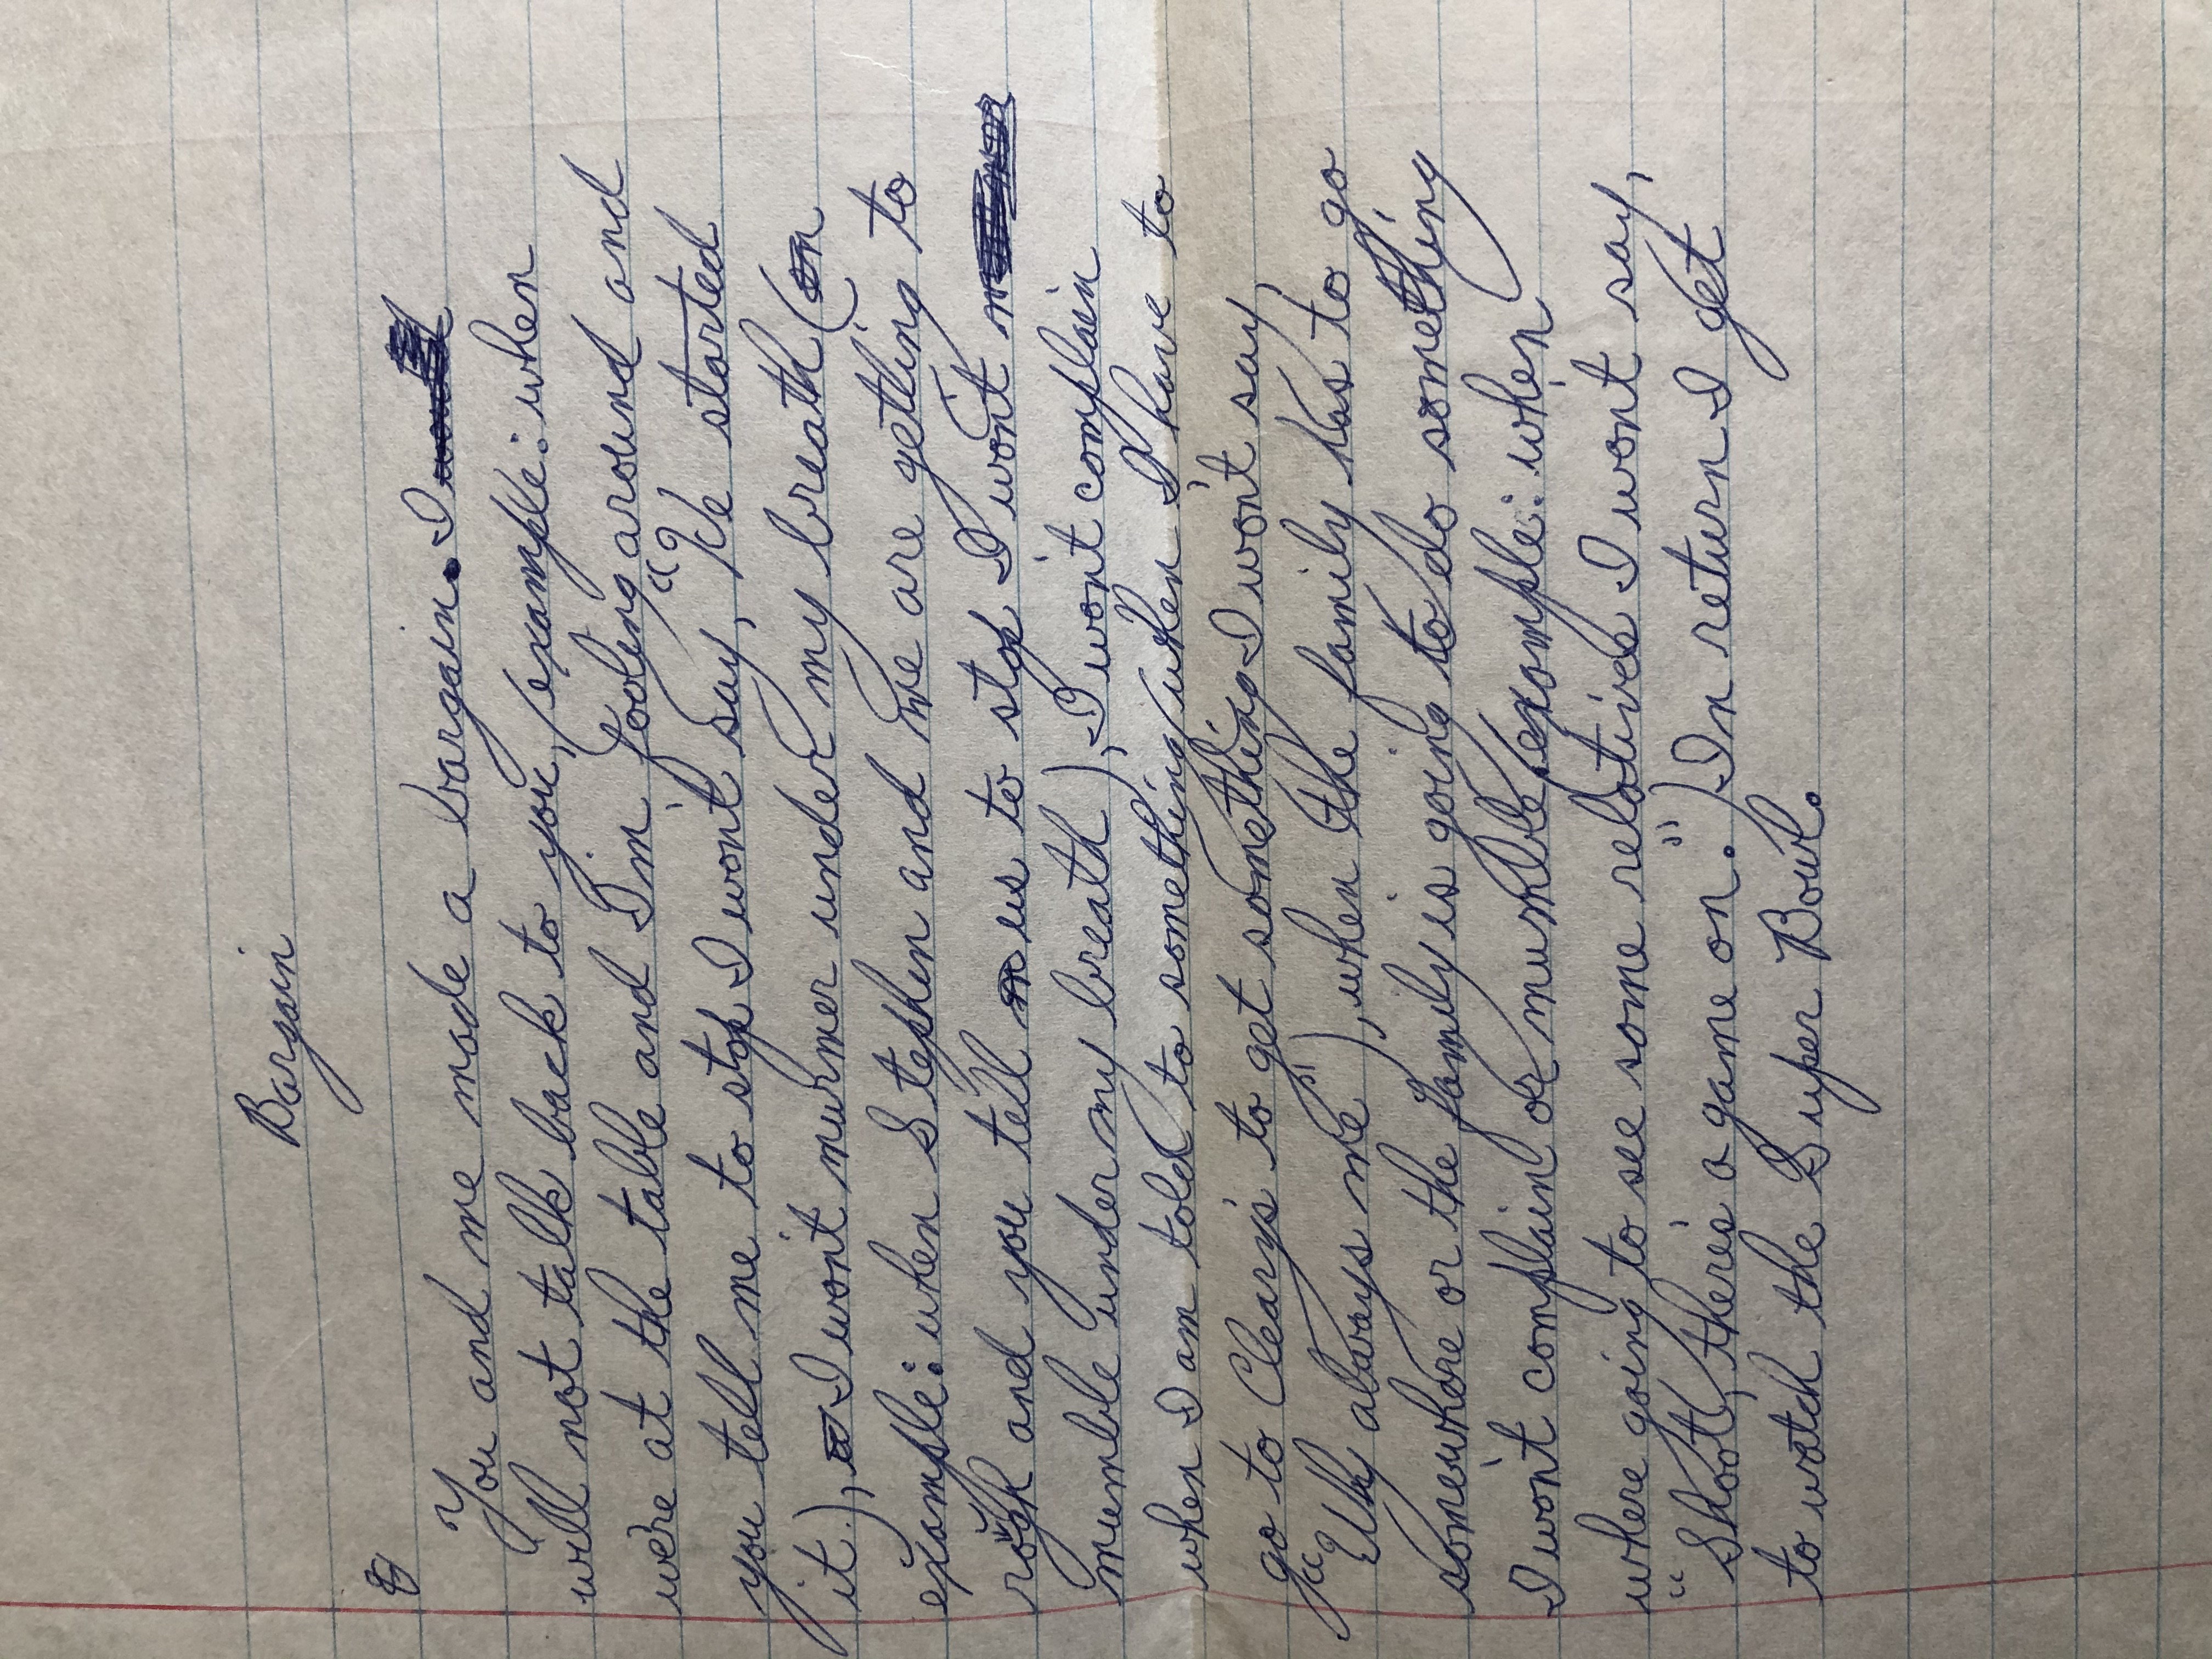 Bargain
You and me made a bargain. I
will not talk back to you, (example: when
we're at the table and I'm fooling around and
you tell me to stop I won't say, "He started
it.), I won't murmer under my breath (
example: when Stephen and me are getting to
rough and you tell us to stop I won't
mumble under my breath), I won't complain
when I am told to something (when I have to
go to Cleary's to get something I won't say,
"Why always me"), when the family has to go
somewhere or the family is going to do something
I won't complain or mumble. (example: when
where going to see some relatives I won't say,
"Shoot, there's a game on.") In return I get
to watch the Super Bowl.